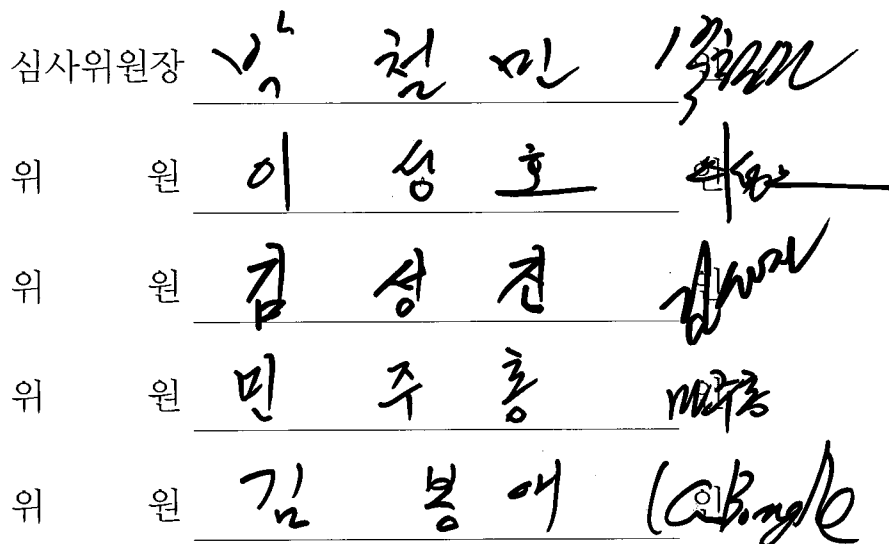 심사위원장 박 철 민 인
위 원 이 성 호 인
위 원 김 성 진 인
위 원 민 주 홍 인 민주홍
위 원 김 봉 애 인